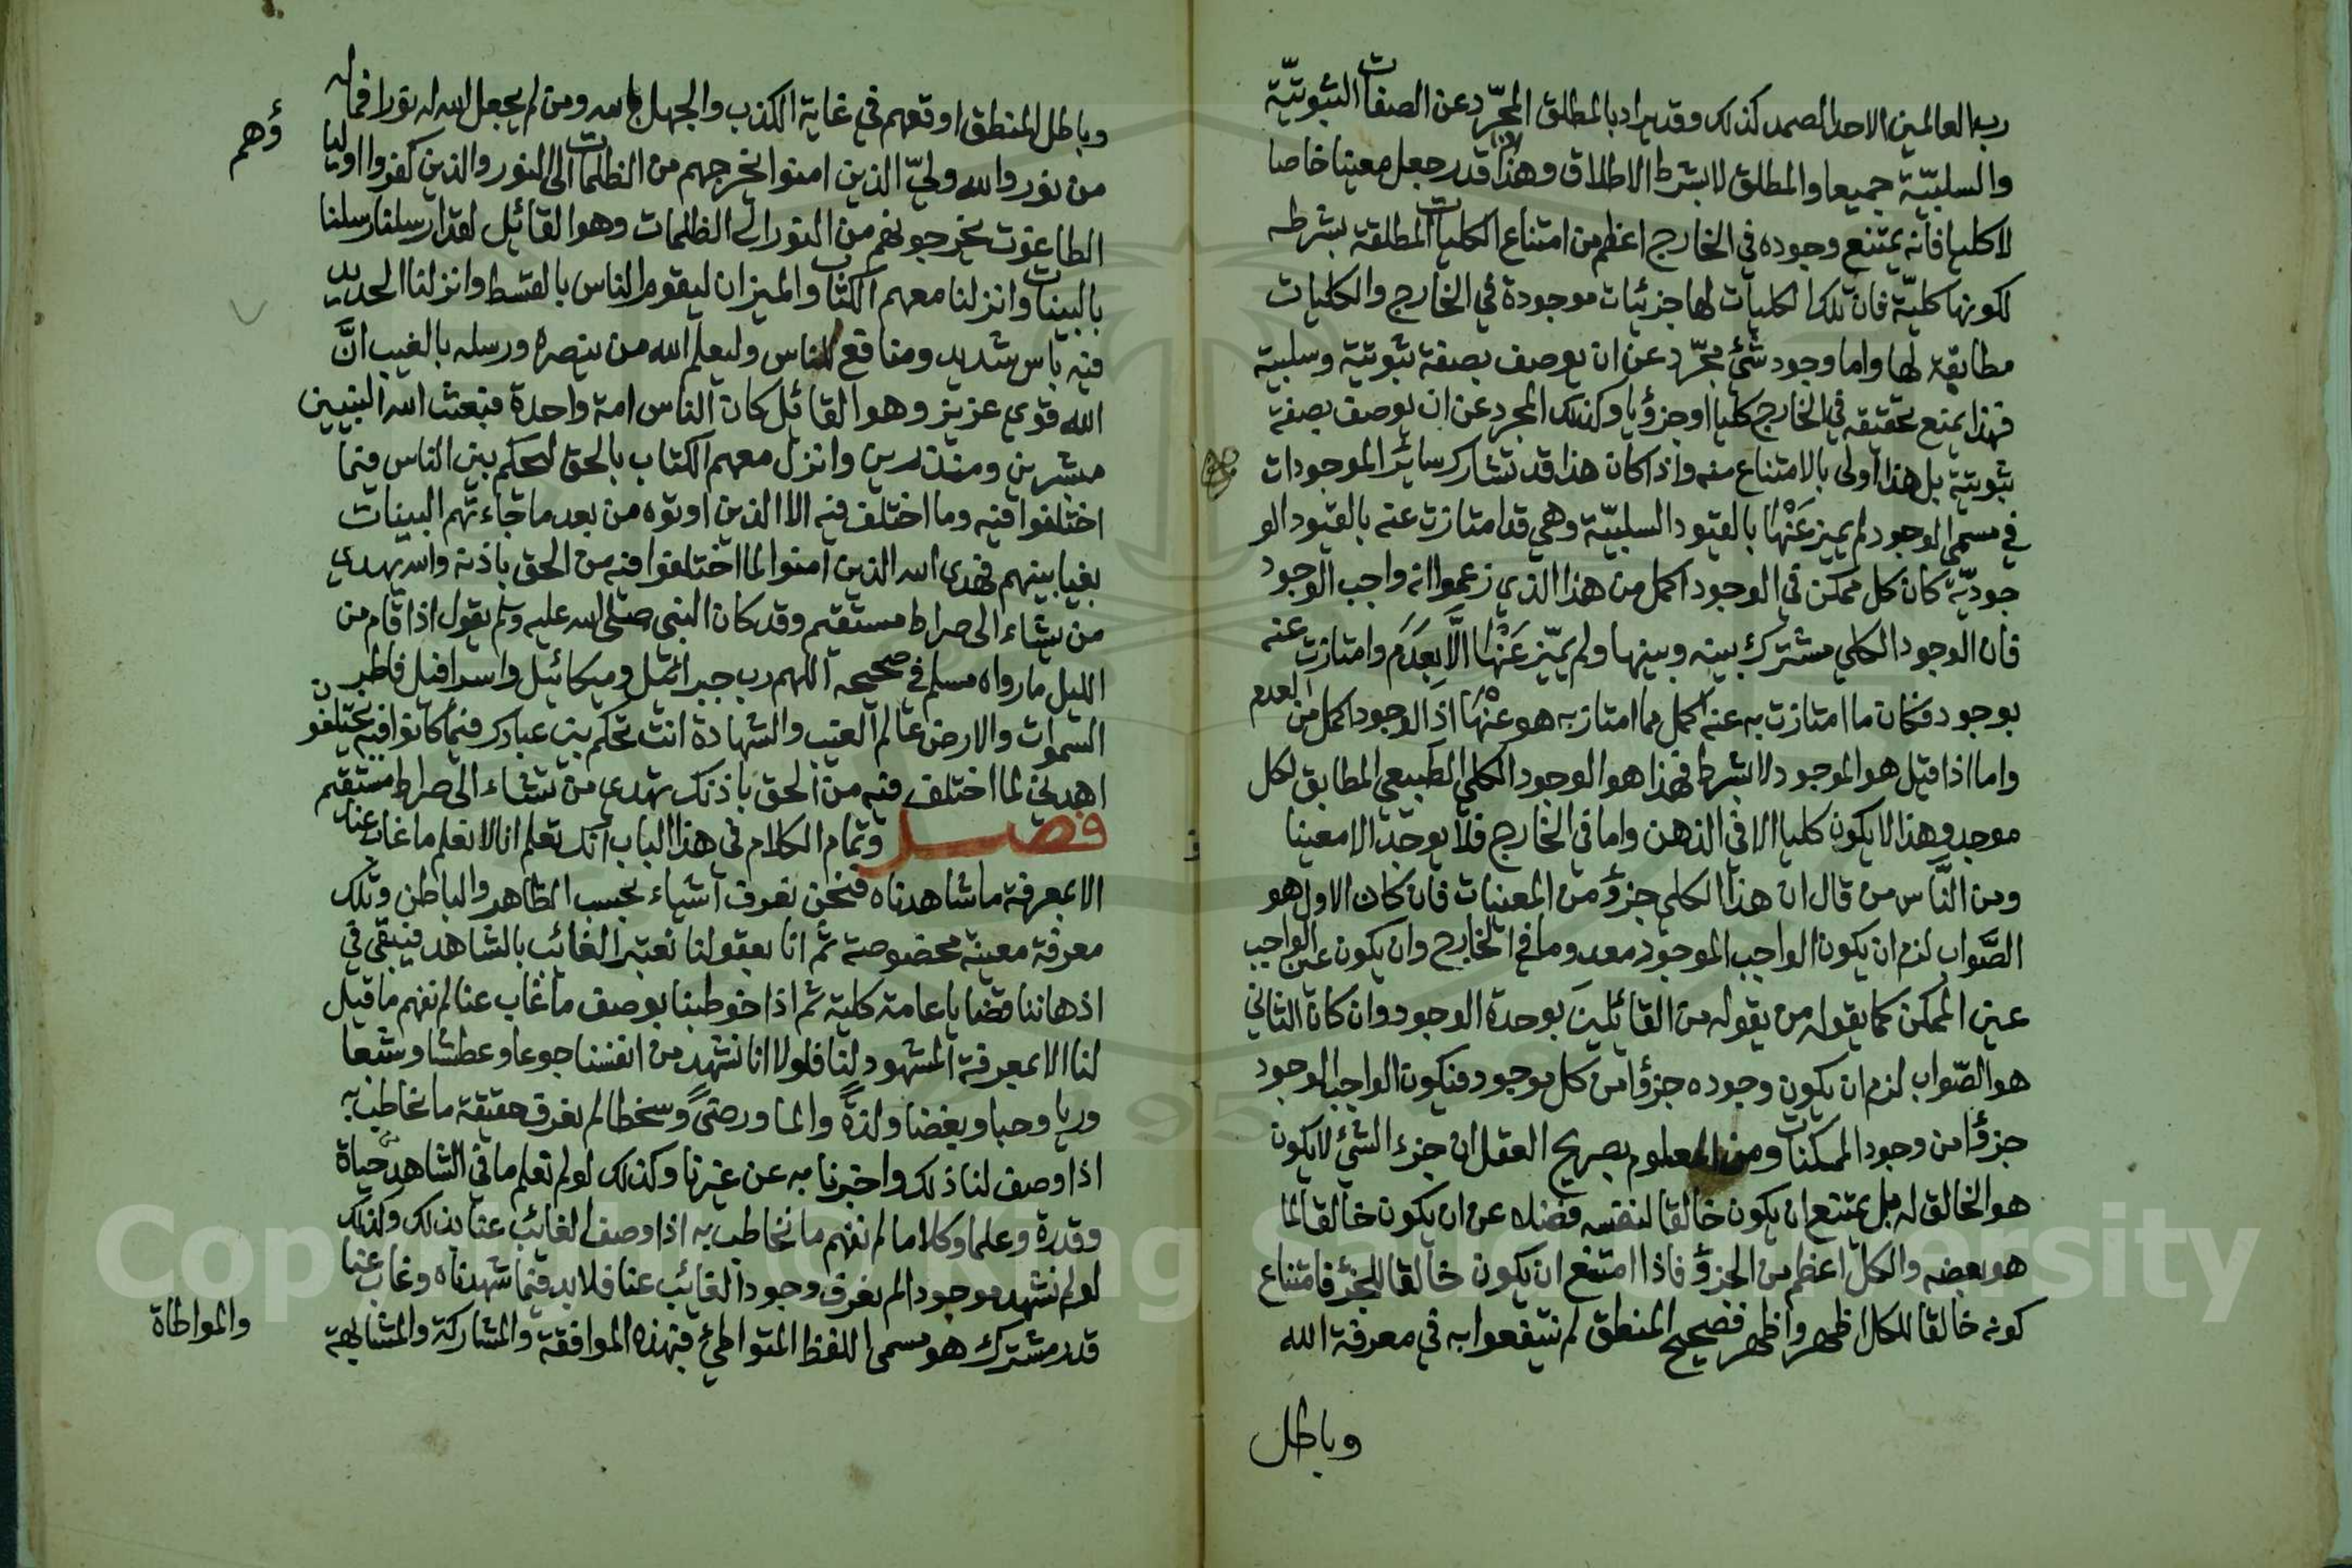 رب العالمين الاحد الصمد كذلك وقد يراد بالمطلق المجرّد عن الصفات الثبوتيّة
والسلبيّة جميعا والمطلق لا بشرط الاطلاق وهذا قدر جعل معينا خاصا
لا كليا فانه يمتنع وجوده في الخارج اعظم من امتناع الكليات المطلقة بشرطه
لكونها كليّة فان تلك الكليات لها جزئيات موجودة في الخارج والكليات
مطابقة لها واما وجود شئ مجرّد عن ان يوصف بصفة ثبوتية وسلبية
فهذا يمتنع تحقيقه في الخارج كليا او جزؤيا وكذلك المجرد عن ان يوصف بصفة
ثبوتية بل هذا اولى بالامتناع منه واذا كان هذا قد تشارك سائر الموجودات
في مسمى الوجود لم يميز عَنْهَا بالقيود السلبيّة وهي قد امتازت عنه بالقيود الو
جوديّة كان كل ممكن في الوجود اكمل من هذا الذي زعموا انه واجب الوجود
فان الوجود الكلي مشترك بينه وبينها ولم يميّز عَنْهَا الَّا بِعَدَم وامتازت عنه
بوجود فكان ما امتازت به عنه اكمل مما امتاز به هو عَنْهَا اذ الوجود اكمل من العدم
واما اذا قيل هو الموجود لا بشرط فهذا هو الوجود الكلي الطبيعي المطابق لكل
موجود وهذا لا يكون كليا الا في الذهن واما في الخارج فلا يوجد الا معينا
ومن النَّاس من قال ان هذا الكلي جزؤ من المعينات فان كان الاول هو
الصَّواب لزم ان يكون الواجب الموجود معدوما في الخارج وان يكون عين الواجب
عين الممكن كما يقوله من يقوله من القائلين بوحدة الوجود وان كان الثاني
هو الصّواب لزم ان يكون وجوده جزؤا من كل موجود فيكون الواجب الوجود
جزؤا من وجود الممكنات ومن المعلوم بصريح العقل ان جزء الشئ لا يكون
هو الخالق له بل يمتنع ان يكون خالقا لنفسه فضلا عن ان يكون خالقا لما
هو بعضه والكل اعظم من الجزؤ فاذا امتنع ان يكون خالقا للجزؤ فامتناع
كونه خالقا للكل اظهر واظهر فصحيح المنطق لم ينتفعوا به في معرفة الله
وباطل
وباطل المنطق اوقعهم في غاية الكذب والجهل بالله ومن لم يجعل الله له نورا فما له
من نور والله وليّ الذين امنوا يخرجهم من الظلمات الى النور والذين كفروا اوليا
ؤهم
الطاغوت يخرجونهم من النور الى الظلمات وهو القائل لقد ارسلنا رسلنا
بالبينات وانزلنا معهم الكتاب والميزان ليقوم الناس بالقسط وانزلنا الحديد
فيه باس شديد ومنافع للناس وليعلم الله من ينصره ورسله بالغيب انَّ
الله قوي عزيز وهو القائل كان الناس امة واحدة فبعث الله النبيين
مبشرين ومنذرين وانزل معهم الكتاب بالحق ليحكم بين الناس فيما
اختلفوا فيه وما اختلف فيه الا الذين اوتوه من بعد ما جاءتهم البينات
بغيا بينهم فهدى الله الذين امنوا لما اختلفوا فيه من الحق باذنه والله يهدي
من يشاء الى صراط مستقيم وقد كان النبي صلى الله عليه وسلم يقول اذا قام من
الليل ما رواه مسلم في صحيحه اللهم رب جبرائيل وميكائيل واسرافيل فاطر
السموات والارض عالم الغيب والشهادة انت تحكم بين عبادك فيما كانوا فيه يختلفون
اهدني لما اختلف فيه من الحق باذنك تهدي من تشاء الى صراط مستقيم
فصل وتمام الكلام في هذا الباب انك تعلم انا لا نعلم ما غاب عنا
الا بمعرفة ما شاهدناه فنحن نعرف اشياء بحسب الظاهر والباطن وتلك
معرفة معينة مخصوصة ثم انا بعقولنا نعتبر الغائب بالشاهد فيبقى في
اذهاننا قضايا عامة كلية ثم اذا خوطبنا بوصف ما غاب عنا لم نفهم ما قيل
لنا الا بمعرفة المشهود لنا فلولا انا نشهد من انفسنا جوعا وعطشا وشبعا
وريا وحبا وبغضا ولذةً والما ورضىً وسخطا لم نعرف حقيقة ما نخاطب به
اذا وصف لنا ذلك واخبرنا به عن غيرنا وكذلك لو لم نعلم ما في الشاهد حياة
وقدرة وعلما وكلاما لم نفهم ما نخاطب به اذا وصف الغائب عنا بذلك وكذلك
لو لم نشهد موجودا لم نعرف وجود الغائب عنا فلا بد فيما شهدناه وغاب عنا
قدر مشترك هو مسمى اللفظ المتواطئ فبهذه الموافقة والمشاركة والمشابهة
والمواطاة
Copyright © King Saud University